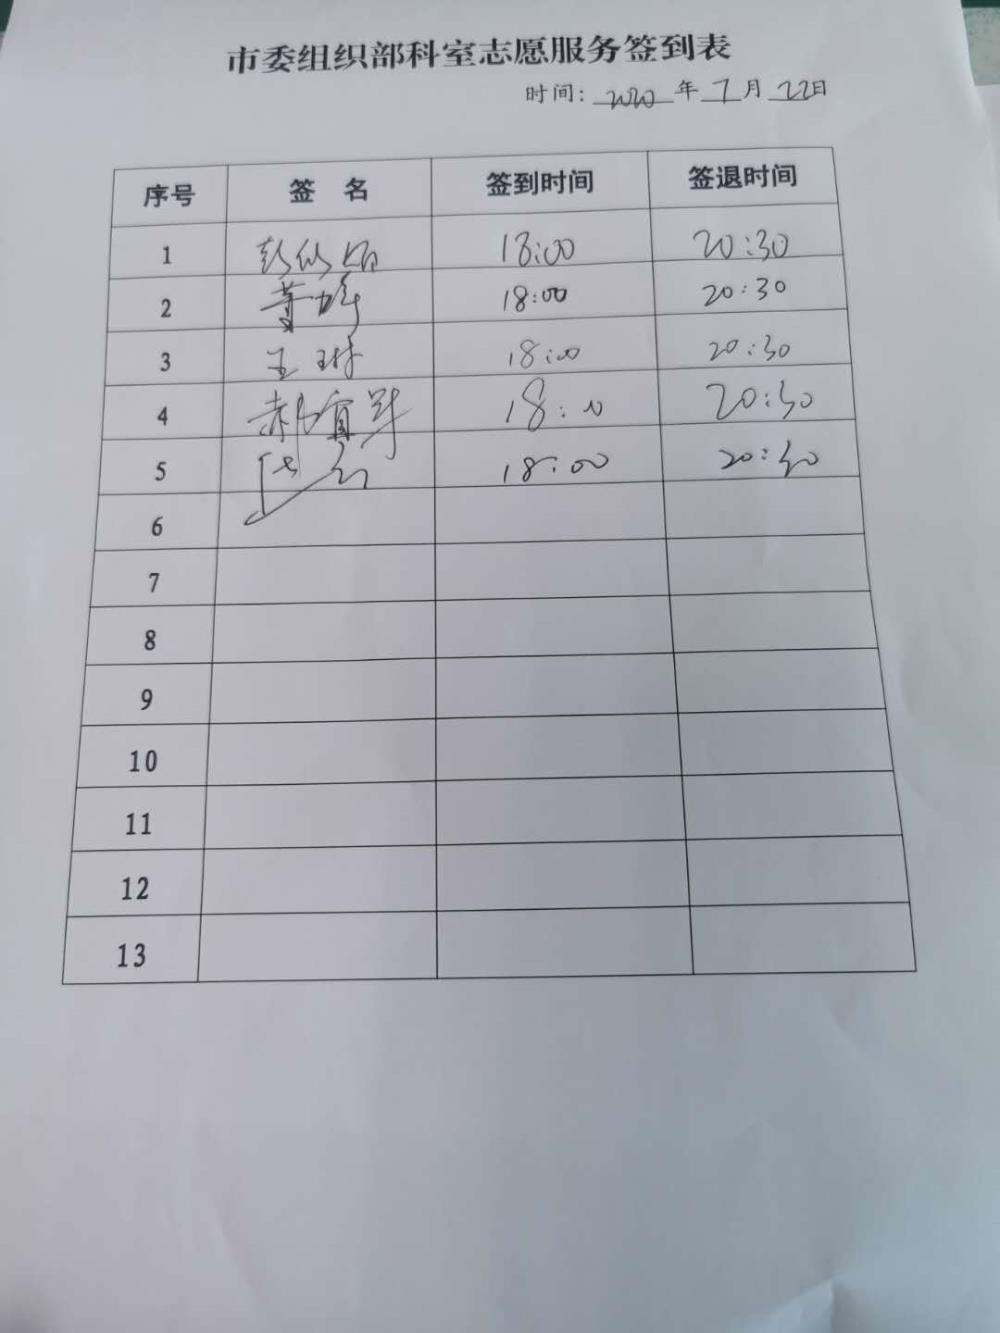 市委组织部科室志愿服务签到表
时间：2020年7月22日
序号 签 名 签到时间 签退时间
1 18:00 20:30
2 董峰 18:00 20:30
3 王琳 18:00 20:30
4 郝宜军 18:00 20:30
5 18:00 20:30
6
7
8
9
10
11
12
13